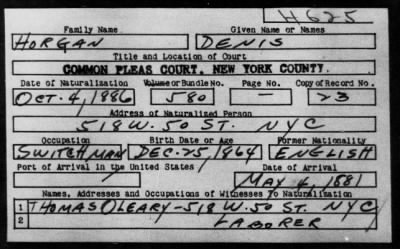 H625
Family Name Given Name or Names
HORGAN DENIS
Title and Location of Court
COMMON PLEAS COURT, NEW YORK COUNTY.
Date of Naturalization Volume or Bundle No. Page No. Copy of Record No.
OCT. 4, 1886 580 — 23
Address of Naturalized Person
518 W. 50 ST. NYC
Occupation Birth Date or Age Former Nationality
SWITCHMAN DEC. 25, 1864 ENGLISH
Port of Arrival in the United States Date of Arrival
/ MAY 4, 1881
Names, Addresses and Occupations of Witnesses To Naturalization
1 THOMAS OLEARY - 518 W. 50 ST. NYC
2 LABORER